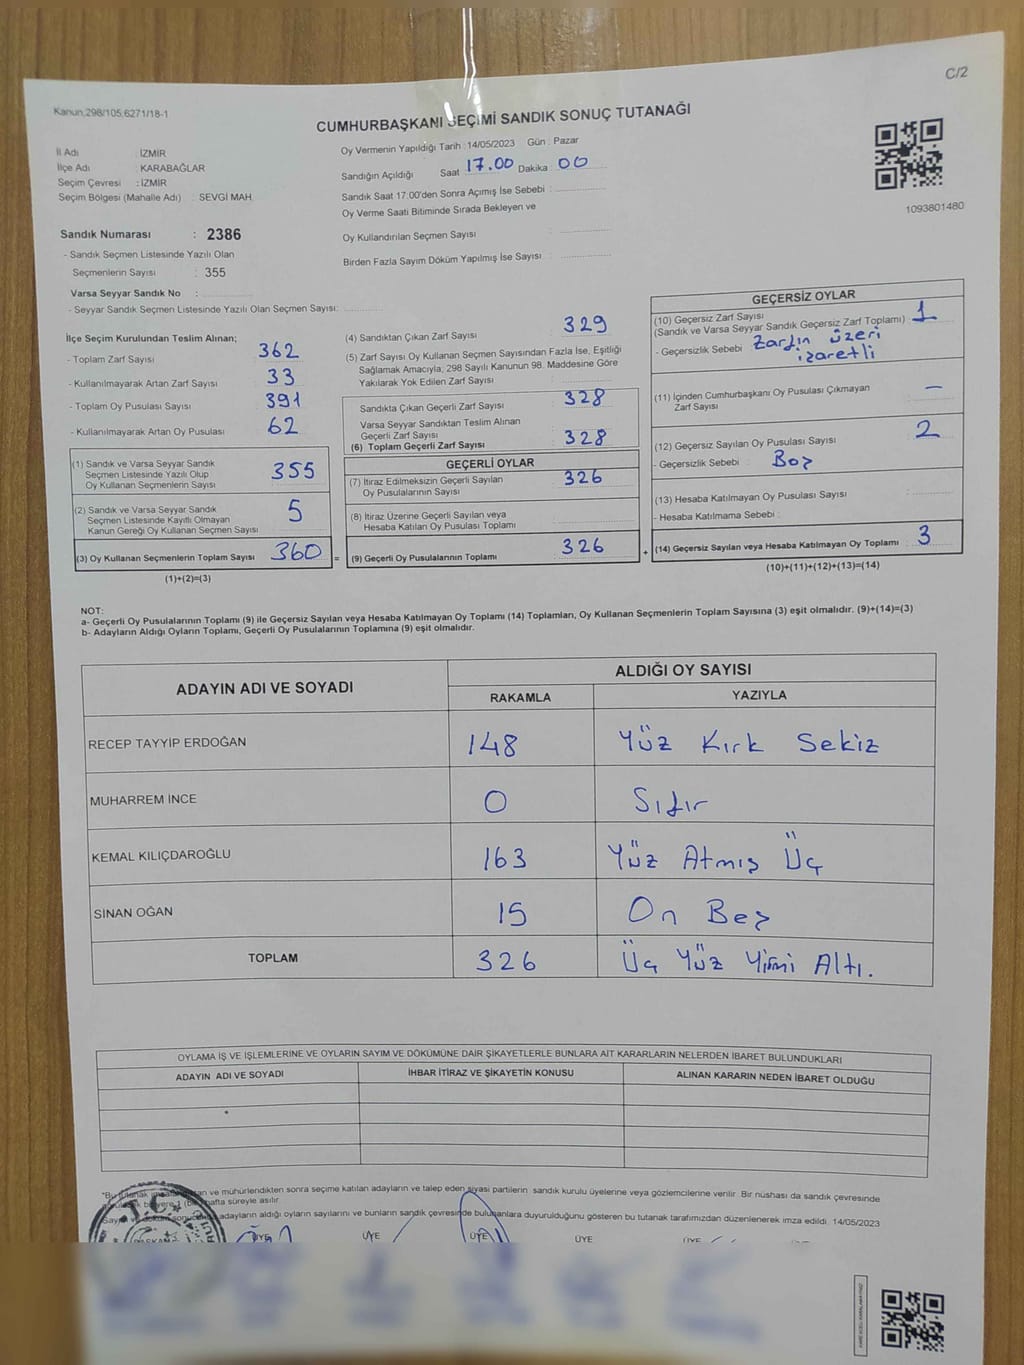 C/2
Kanun,298/105,6271/18-1
CUMHURBAŞKANI SEÇİMİ SANDIK SONUÇ TUTANAĞI
İl Adı : İZMİR
İlçe Adı : KARABAĞLAR
Seçim Çevresi : İZMİR
Seçim Bölgesi (Mahalle Adı) : SEVGİ MAH.
Oy Vermenin Yapıldığı Tarih : 14/05/2023 Gün : Pazar
Sandığın Açıldığı Saat 17.00 Dakika 00
Sandık Saat 17:00'den Sonra Açımış İse Sebebi :
Oy Verme Saati Bitiminde Sırada Bekleyen ve
Oy Kullandırılan Seçmen Sayısı :
Birden Fazla Sayım Döküm Yapılmış İse Sayısı :
1093801480
Sandık Numarası : 2386
- Sandık Seçmen Listesinde Yazılı Olan
Seçmenlerin Sayısı : 355
Varsa Seyyar Sandık No :
- Seyyar Sandık Seçmen Listesinde Yazılı Olan Seçmen Sayısı:
İlçe Seçim Kurulundan Teslim Alınan;
- Toplam Zarf Sayısı 362
- Kullanılmayarak Artan Zarf Sayısı 33
- Toplam Oy Pusulası Sayısı 391
- Kullanılmayarak Artan Oy Pusulası 62
(1) Sandık ve Varsa Seyyar Sandık
Seçmen Listesinde Yazılı Olup
Oy Kullanan Seçmenlerin Sayısı 355
(2) Sandık ve Varsa Seyyar Sandık
Seçmen Listesinde Kayıtlı Olmayan
Kanun Gereği Oy Kullanan Seçmen Sayısı 5
(3) Oy Kullanan Seçmenlerin Toplam Sayısı 360 =
(1)+(2)=(3)
(4) Sandıktan Çıkan Zarf Sayısı 329
(5) Zarf Sayısı Oy Kullanan Seçmen Sayısından Fazla İse, Eşitliği
Sağlamak Amacıyla; 298 Sayılı Kanunun 98. Maddesine Göre
Yakılarak Yok Edilen Zarf Sayısı
Sandıkta Çıkan Geçerli Zarf Sayısı 328
Varsa Seyyar Sandıktan Teslim Alınan
Geçerli Zarf Sayısı
(6) Toplam Geçerli Zarf Sayısı 328
GEÇERLİ OYLAR
(7) İtiraz Edilmeksizin Geçerli Sayılan
Oy Pusulalarının Sayısı 326
(8) İtiraz Üzerine Geçerli Sayılan veya
Hesaba Katılan Oy Pusulası Toplamı
(9) Geçerli Oy Pusulalarının Toplamı 326 +
GEÇERSİZ OYLAR
(10) Geçersiz Zarf Sayısı
(Sandık ve Varsa Seyyar Sandık Geçersiz Zarf Toplamı) 1
- Geçersizlik Sebebi Zarfın üzeri
izaretli
(11) İçinden Cumhurbaşkanı Oy Pusulası Çıkmayan
Zarf Sayısı —
(12) Geçersiz Sayılan Oy Pusulası Sayısı 2
- Geçersizlik Sebebi : Boş
(13) Hesaba Katılmayan Oy Pusulası Sayısı :
- Hesaba Katılmama Sebebi :
(14) Geçersiz Sayılan veya Hesaba Katılmayan Oy Toplamı : 3
(10)+(11)+(12)+(13)=(14)
NOT:
a- Geçerli Oy Pusulalarının Toplamı (9) ile Geçersiz Sayılan veya Hesaba Katılmayan Oy Toplamı (14) Toplamları, Oy Kullanan Seçmenlerin Toplam Sayısına (3) eşit olmalıdır. (9)+(14)=(3)
b- Adayların Aldığı Oyların Toplamı, Geçerli Oy Pusulalarının Toplamına (9) eşit olmalıdır.
ADAYIN ADI VE SOYADI
ALDIĞI OY SAYISI
RAKAMLA YAZIYLA
RECEP TAYYİP ERDOĞAN 148 Yüz Kırk Sekiz
MUHARREM İNCE 0 Sıfır
KEMAL KILIÇDAROĞLU 163 Yüz Atmış Üç
SİNAN OĞAN 15 On Beş
TOPLAM 326 Üç Yüz Yirmi Altı.
OYLAMA İŞ VE İŞLEMLERİNE VE OYLARIN SAYIM VE DÖKÜMÜNE DAİR ŞİKAYETLERLE BUNLARA AİT KARARLARIN NELERDEN İBARET BULUNDUKLARI
ADAYIN ADI VE SOYADI İHBAR İTİRAZ VE ŞİKAYETİN KONUSU ALINAN KARARIN NEDEN İBARET OLDUĞU
ve mühürlendikten sonra seçime katılan adayların ve talep eden siyasi partilerin sandık kurulu üyelerine veya gözlemcilerine verilir. Bir nüshası da sandık çevresinde
hafta süreyle asılır.
adayların aldığı oyların sayılarını ve bunların sandık çevresinde bulunanlara duyurulduğunu gösteren bu tutanak tarafımızdan düzenlenerek imza edildi. 14/05/2023
ÜYE ÜYE ÜYE ÜYE